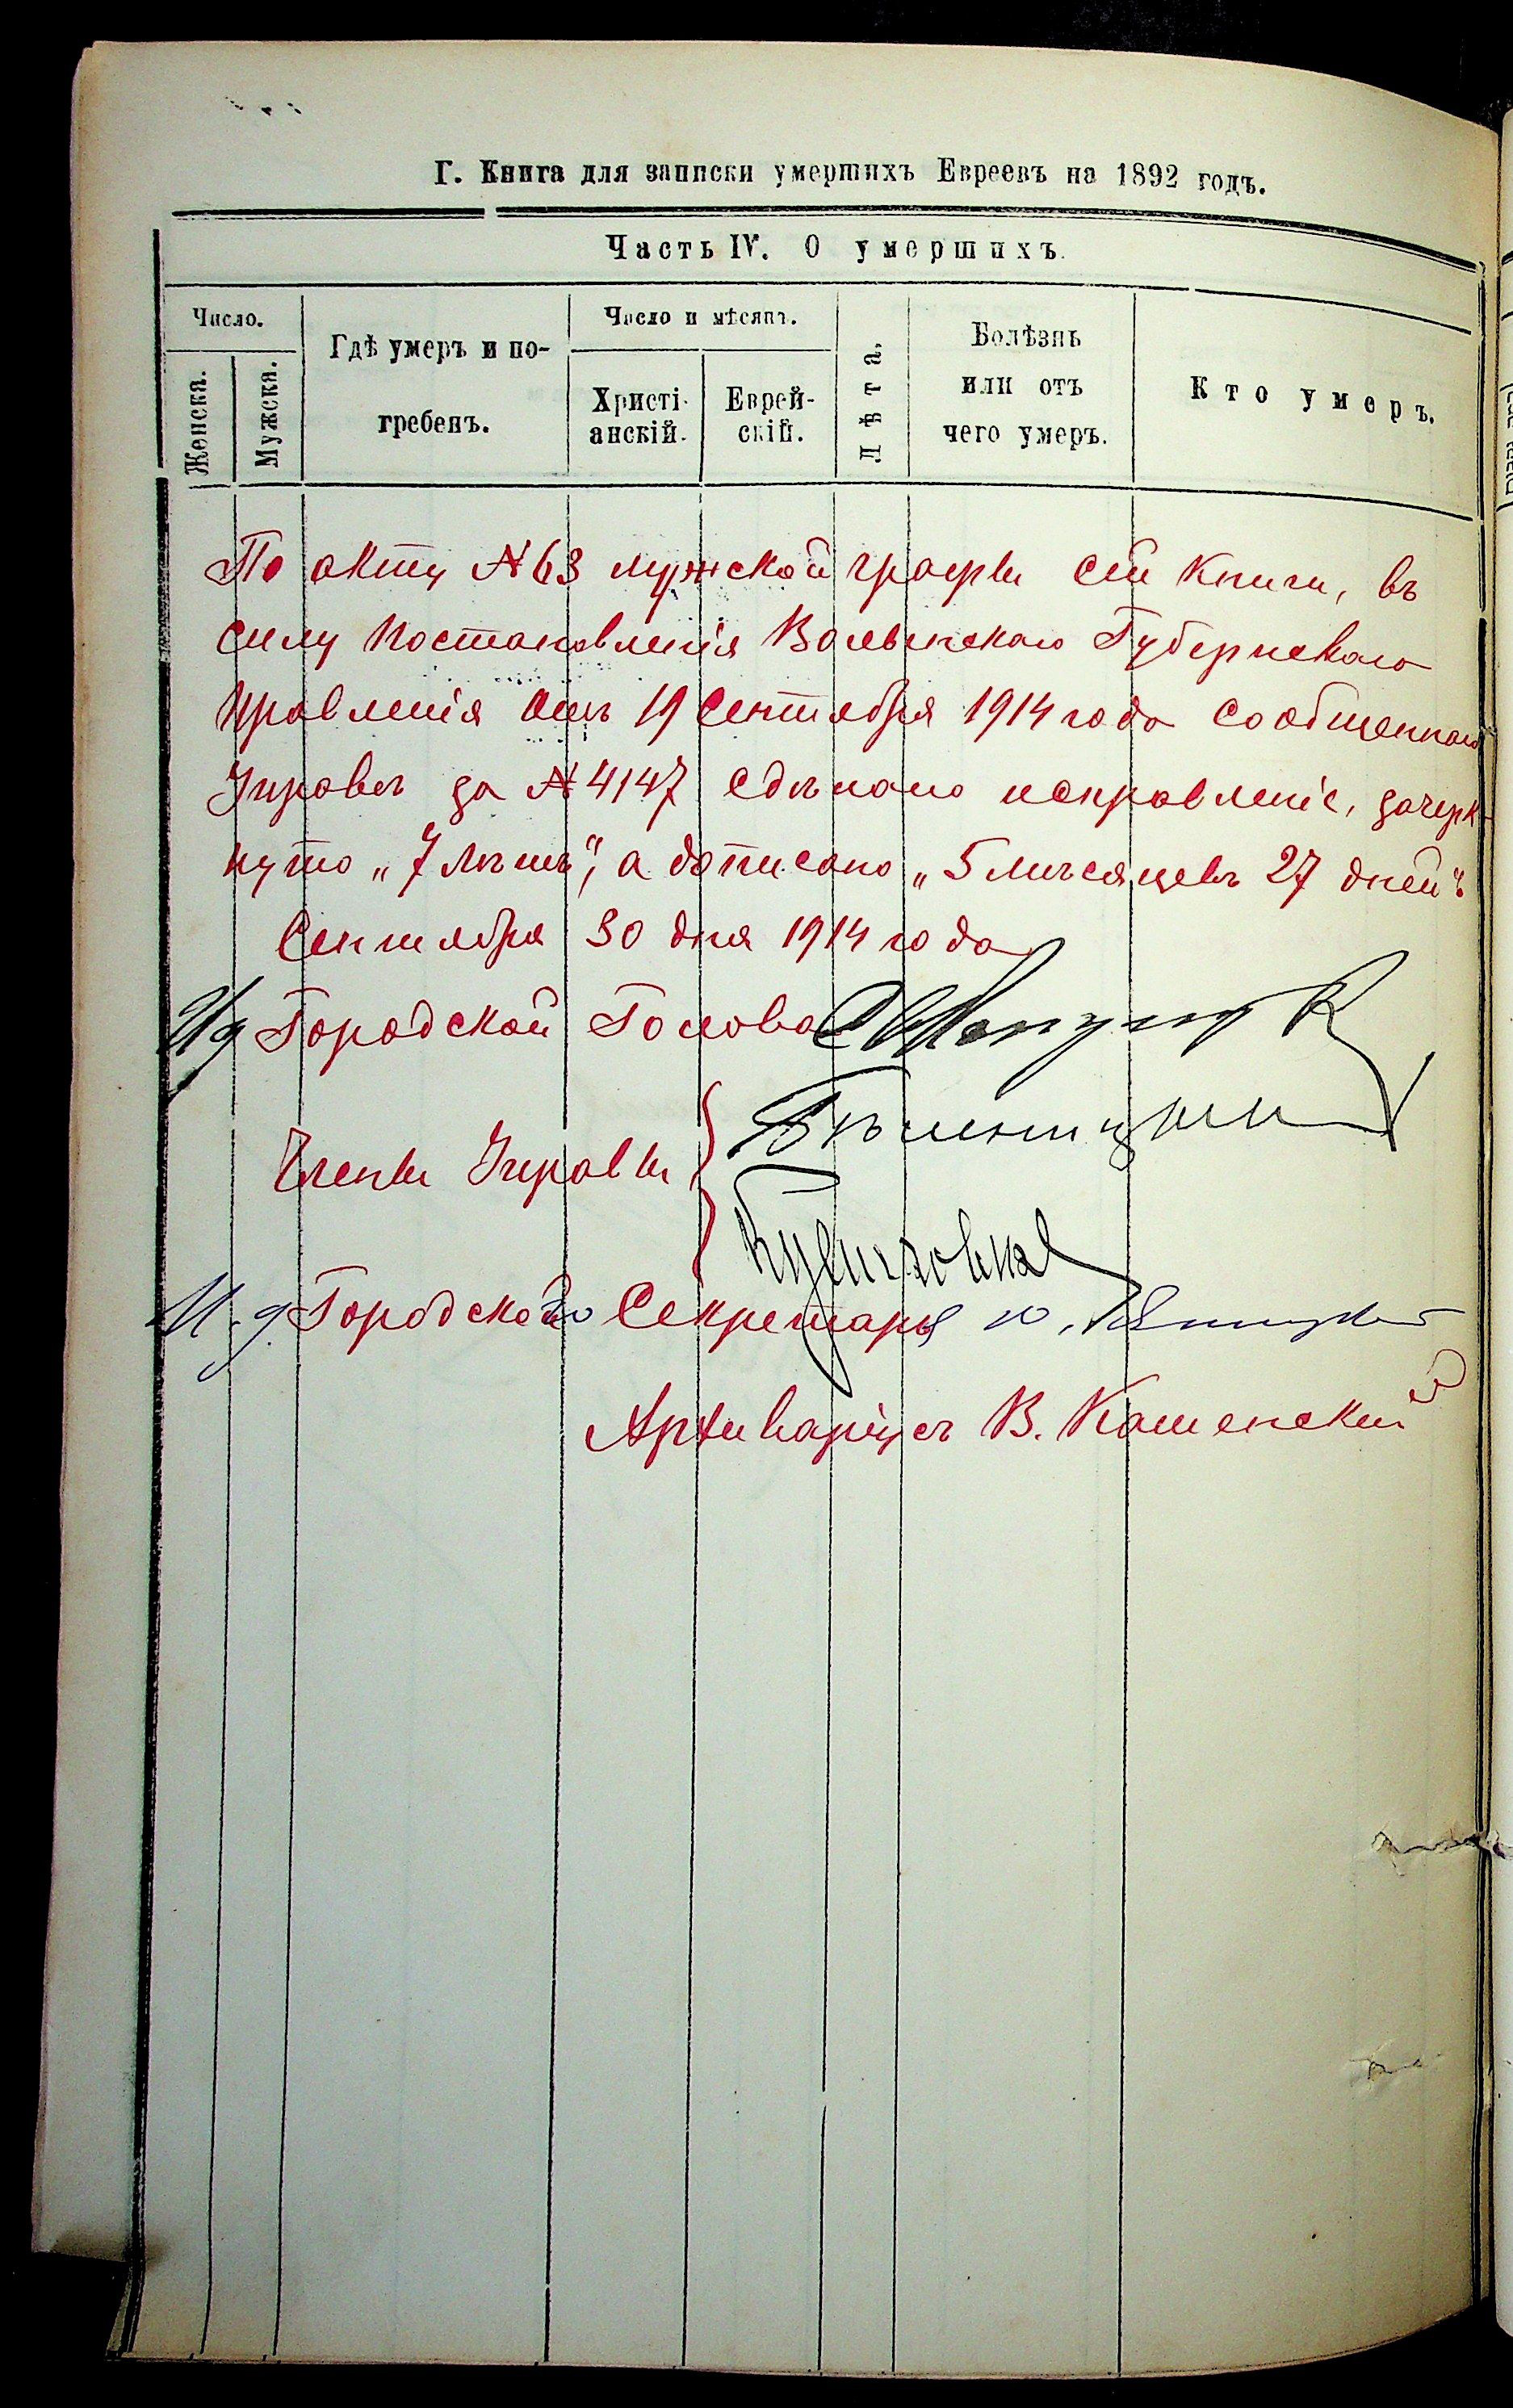 Г. Книга для записки умершихъ Евреевъ на 1892 годъ.
Часть IV. О умершихъ.
Число.
Женска.
Мужска.
Гдѣ умеръ и по-
гребенъ.
Число и мѣсяцъ.
Христі-
анскій.
Еврей-
скій.
Лѣта.
Болѣзнь
или отъ
чего умеръ.
Кто умеръ.
По акту №63 мужской графы сей книги, въ
силу постановленія Волынскаго Губернскаго
Правленія отъ 19 Сентября 1914 года сообщеннаго
Управѣ за №4147 сдѣлано исправленіе, зачерк-
нуто „7 лѣтъ“, а дописано „5 мѣсяцевъ 27 дней“
Сентября 30 дня 1914 года
Ид Городской Голова
Члены Управы
И.д. Городского Секретаря
Архиваріусъ В. Каменский